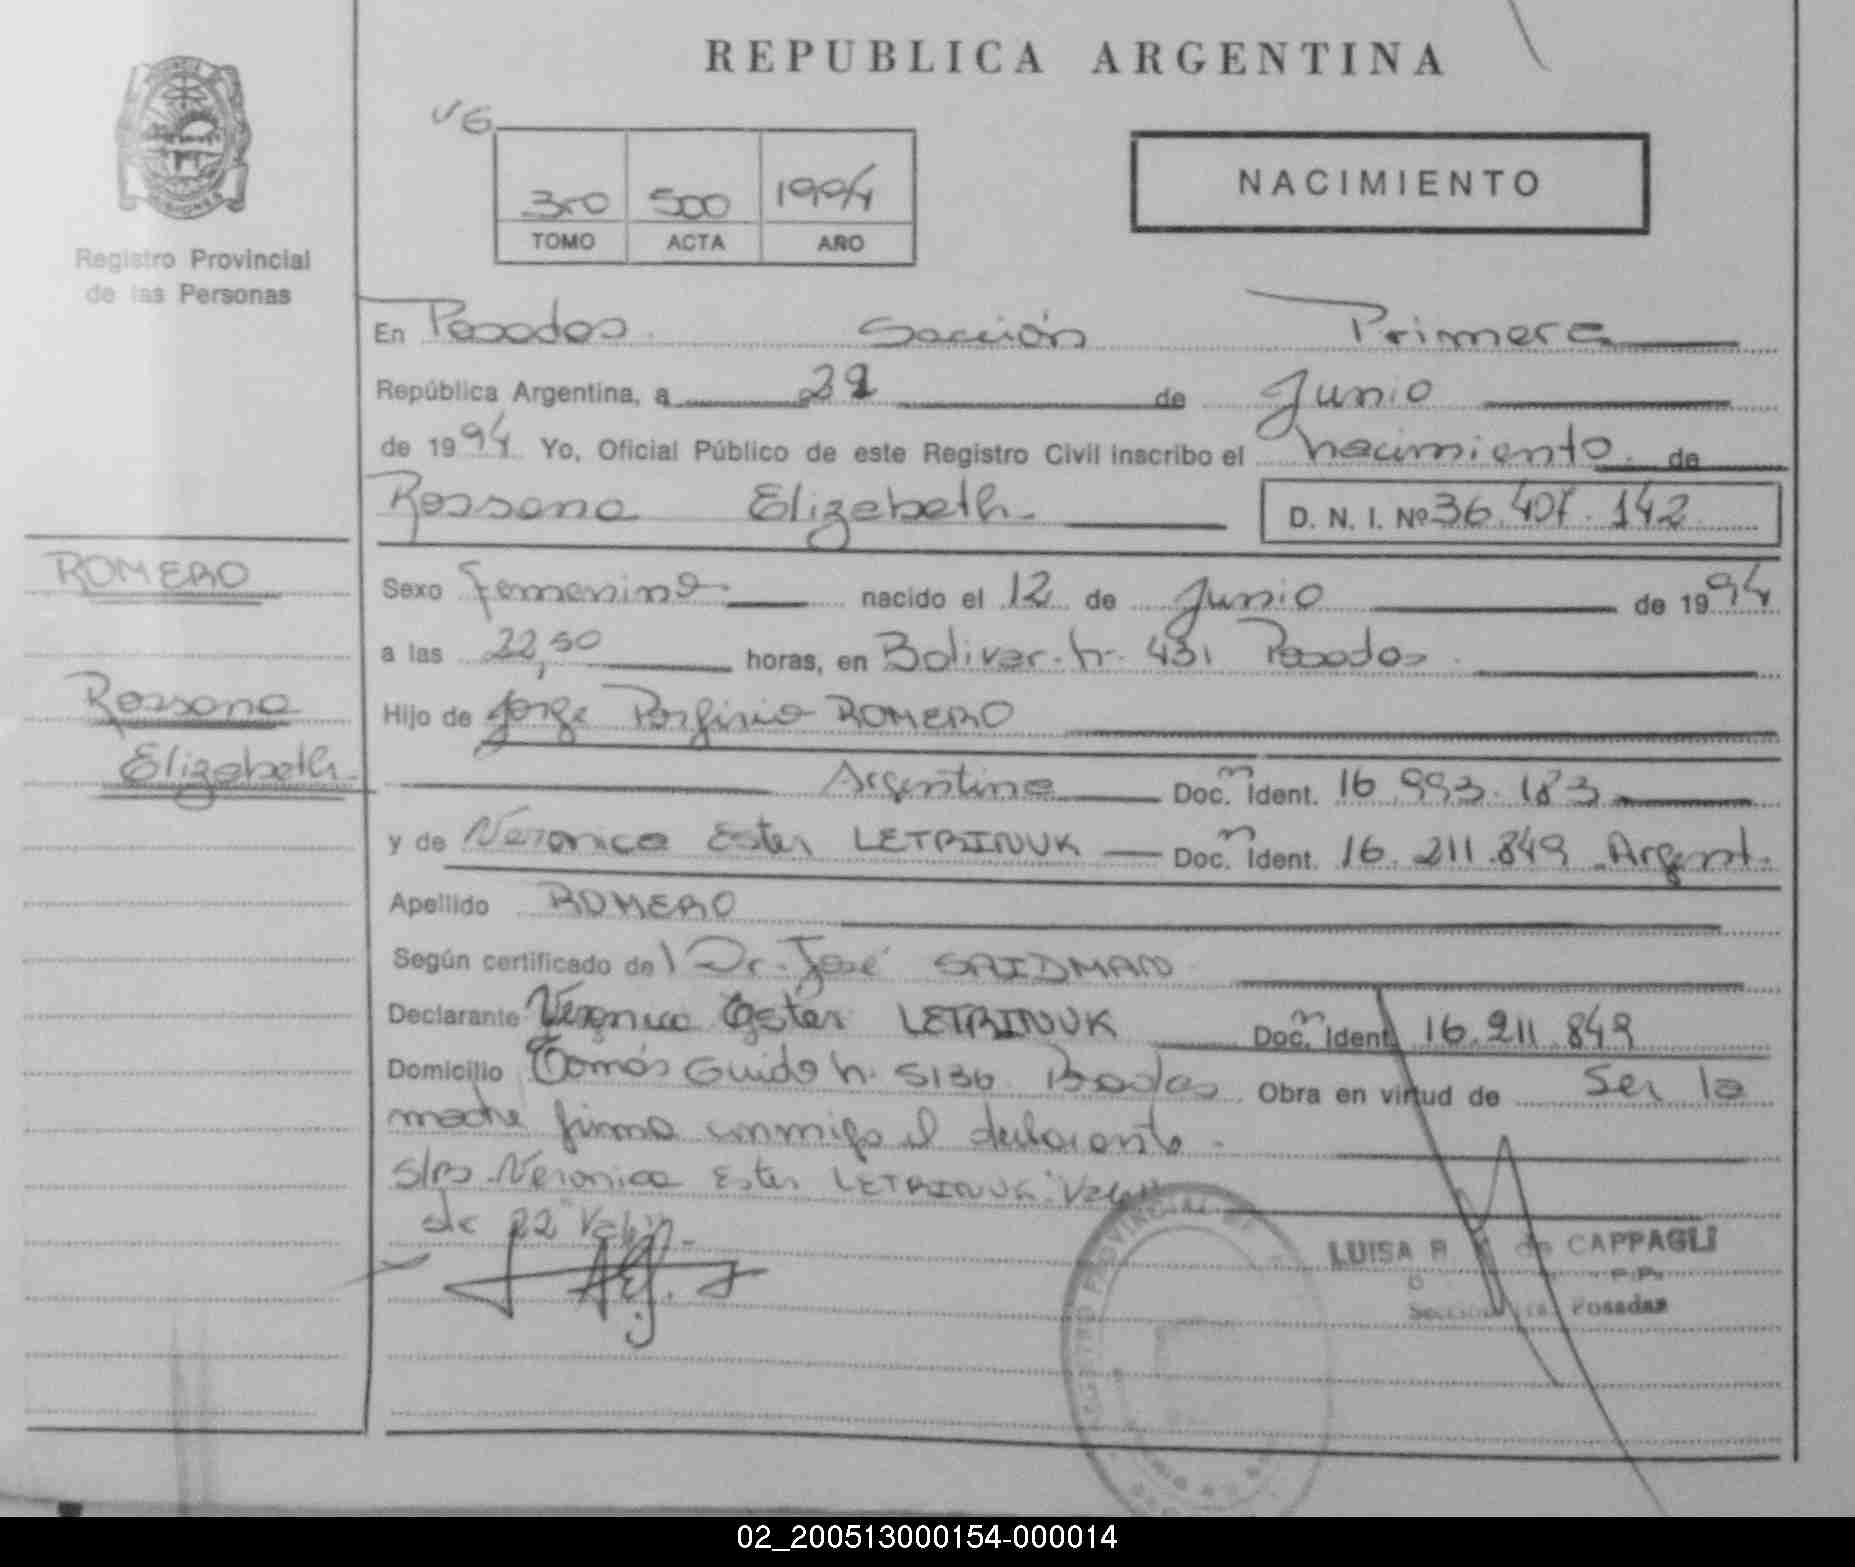 REPUBLICA ARGENTINA
Registro Provincial
de las Personas
500 1994
TOMO ACTA AÑO
NACIMIENTO
En Posadas Sección Primera
República Argentina, a de Junio
de 1994 Yo, Oficial Público de este Registro Civil inscribo el nacimiento de
Rossana Elizabeth D. N. I. Nº 36.407.142
ROMERO
Rossana
Elizabeth
Sexo Femenino nacido el 12 de Junio de 1994
a las 22,50 horas, en Bolivar n. 431 Posadas
Hijo de Jorge Porfirio ROMERO
Argentino Doc.m Ident. 16.993.183
y de Veronica Ester LETRINUK Doc.m Ident. 16.211.849 Argent.
Apellido ROMERO
Según certificado del Dr. José SAIDMAN
Declarante Veronica Ester LETRINUK Doc.m Ident. 16.211.849
Domicilio Tomás Guido n. 5136 Posadas Obra en virtud de Ser la
madre firma conmigo el declarante.
S/rs Veronica Ester LETRINUK "Vale"
22 "Vale".
LUISA R de CAPPAGLI
Sección 1ra. Posadas
REGISTRO PROVINCIAL DE
02_200513000154-000014